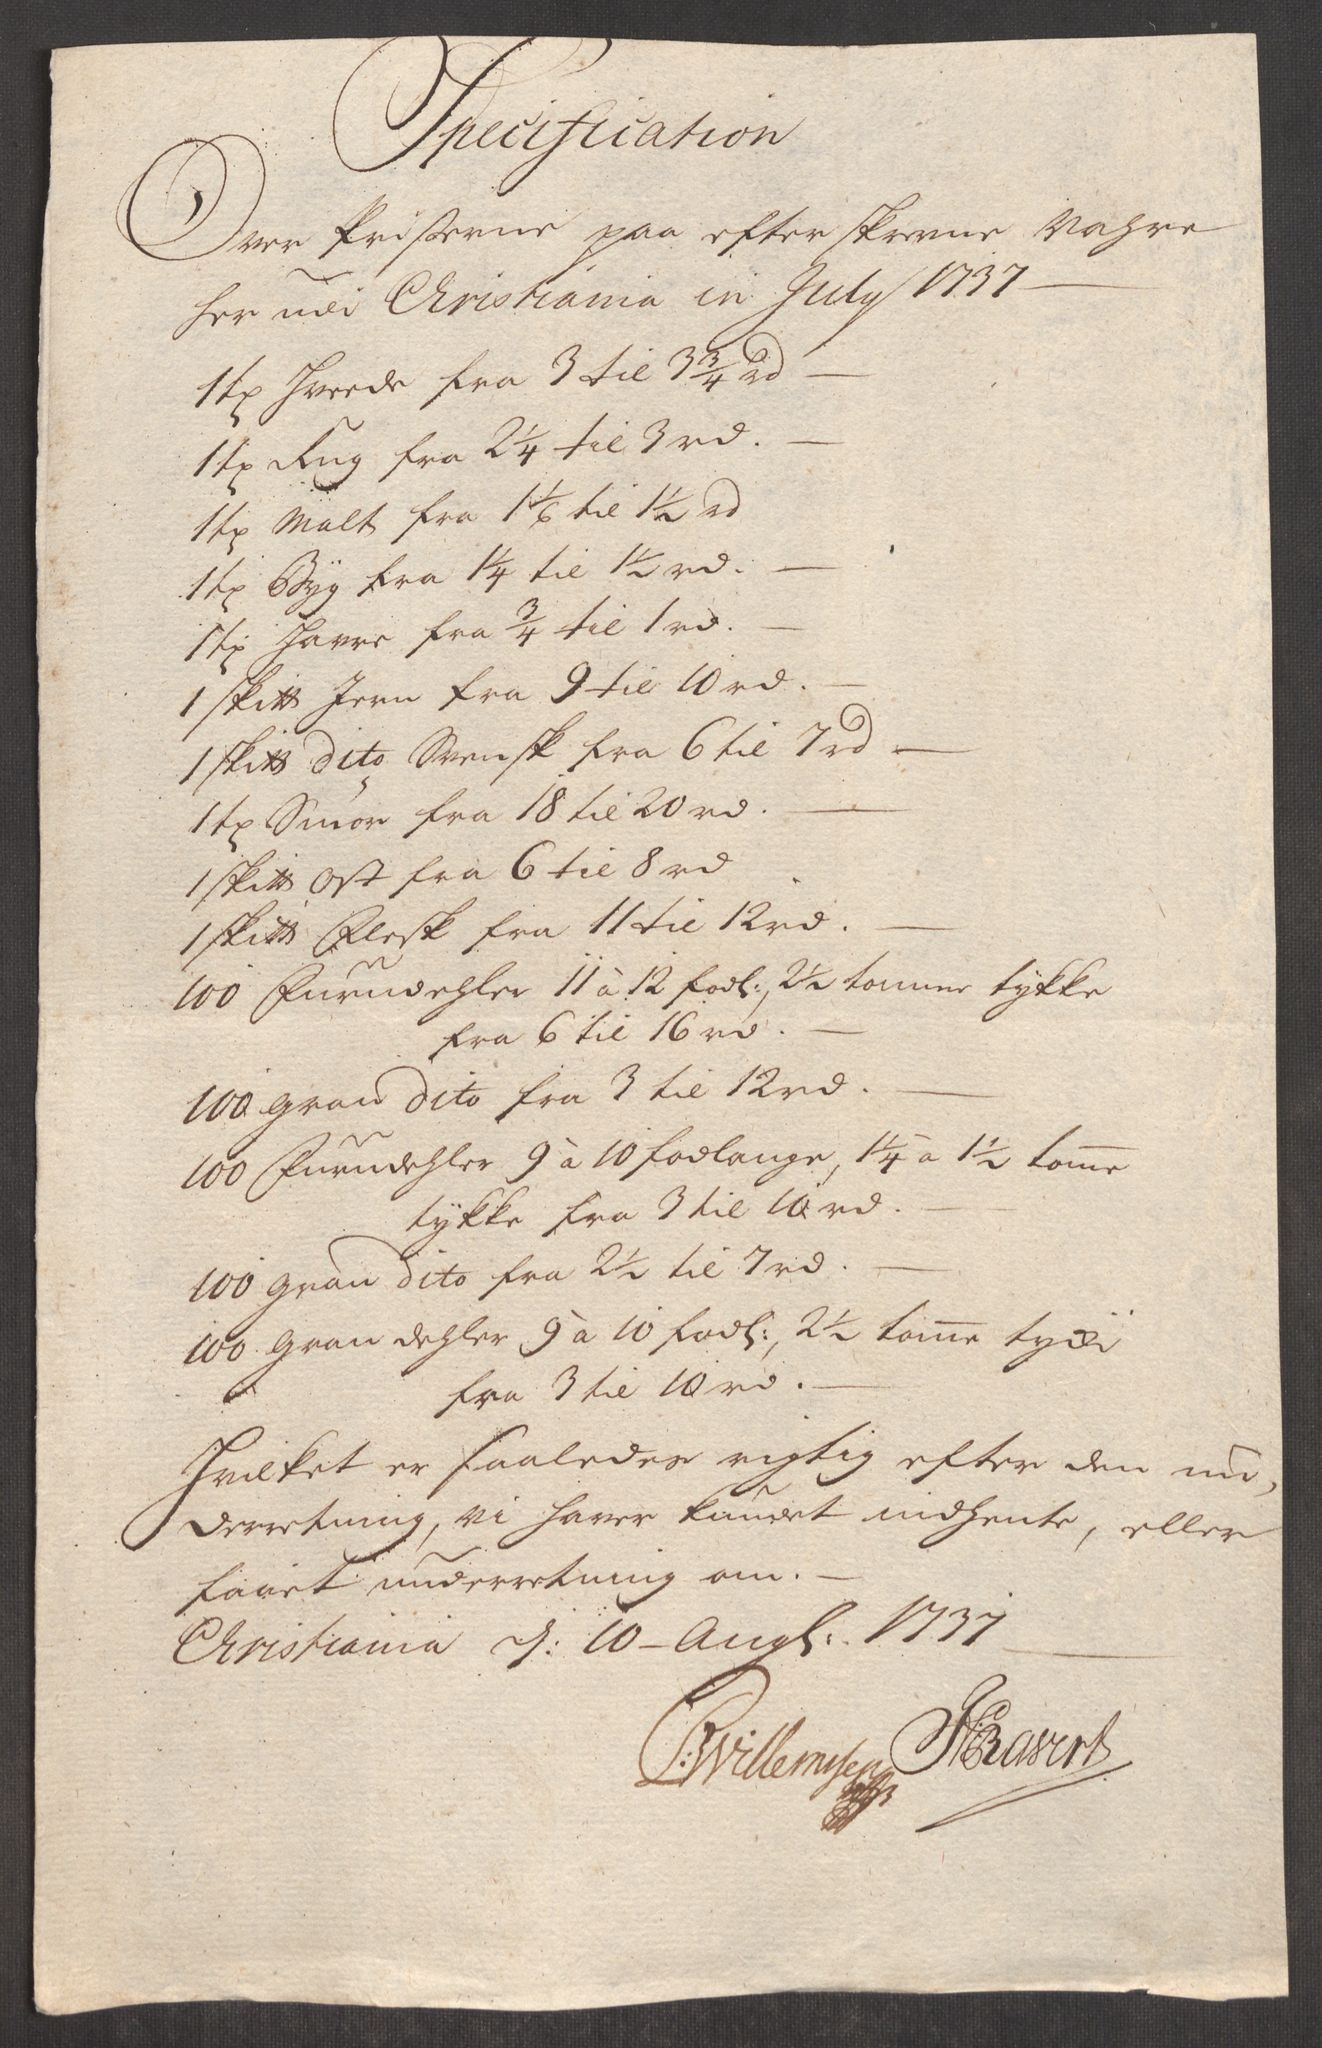 Specification
Over Prisserne paa efterskrevne Vahre
her udi Christiania in July 1737
1 tø Hvede fra 3 til 3 3/4 rd
1 tø Rug fra 2 1/4 til 3 rd.
1 tø Malt fra 1 1/6 til 1 1/2 rd
1 tø Byg fra 1 1/4 til 1 1/2 rd.
1 tø Havre fra 3/4 til 1 rd.
1 skittt Jern fra 9 til 10 rd.
1 skittt dito Svensk fra 6 til 7 rd
1 tø Smör fra 18 til 20 rd.
1 skittt Ost fra 6 til 8 rd
1 skittt Flesk fra 11 til 12 rd.
100 Furudehler 11 à 12 fodl:, 2 1/2 tomme tykke
fra 6 til 16 rd.
100 gran dito fra 3 til 12 rd.
100 Furudehler 9 à 10 fodlange, 1 1/4 a 1 1/2 tome
tykke fra 3 til 10 rd.
100 gran dito fra 2 1/2 til 7 rd.
100 gran dehler 9 à 10 fodl:, 2 1/2 tome
fra 3 til 10 rd.
Hvilket er saaledes rigtig efter den un,
derretning, vi haver kundet indhente, eller
faaet underretning om.
Christiania d: 10 Augs: 1737
Willemsen